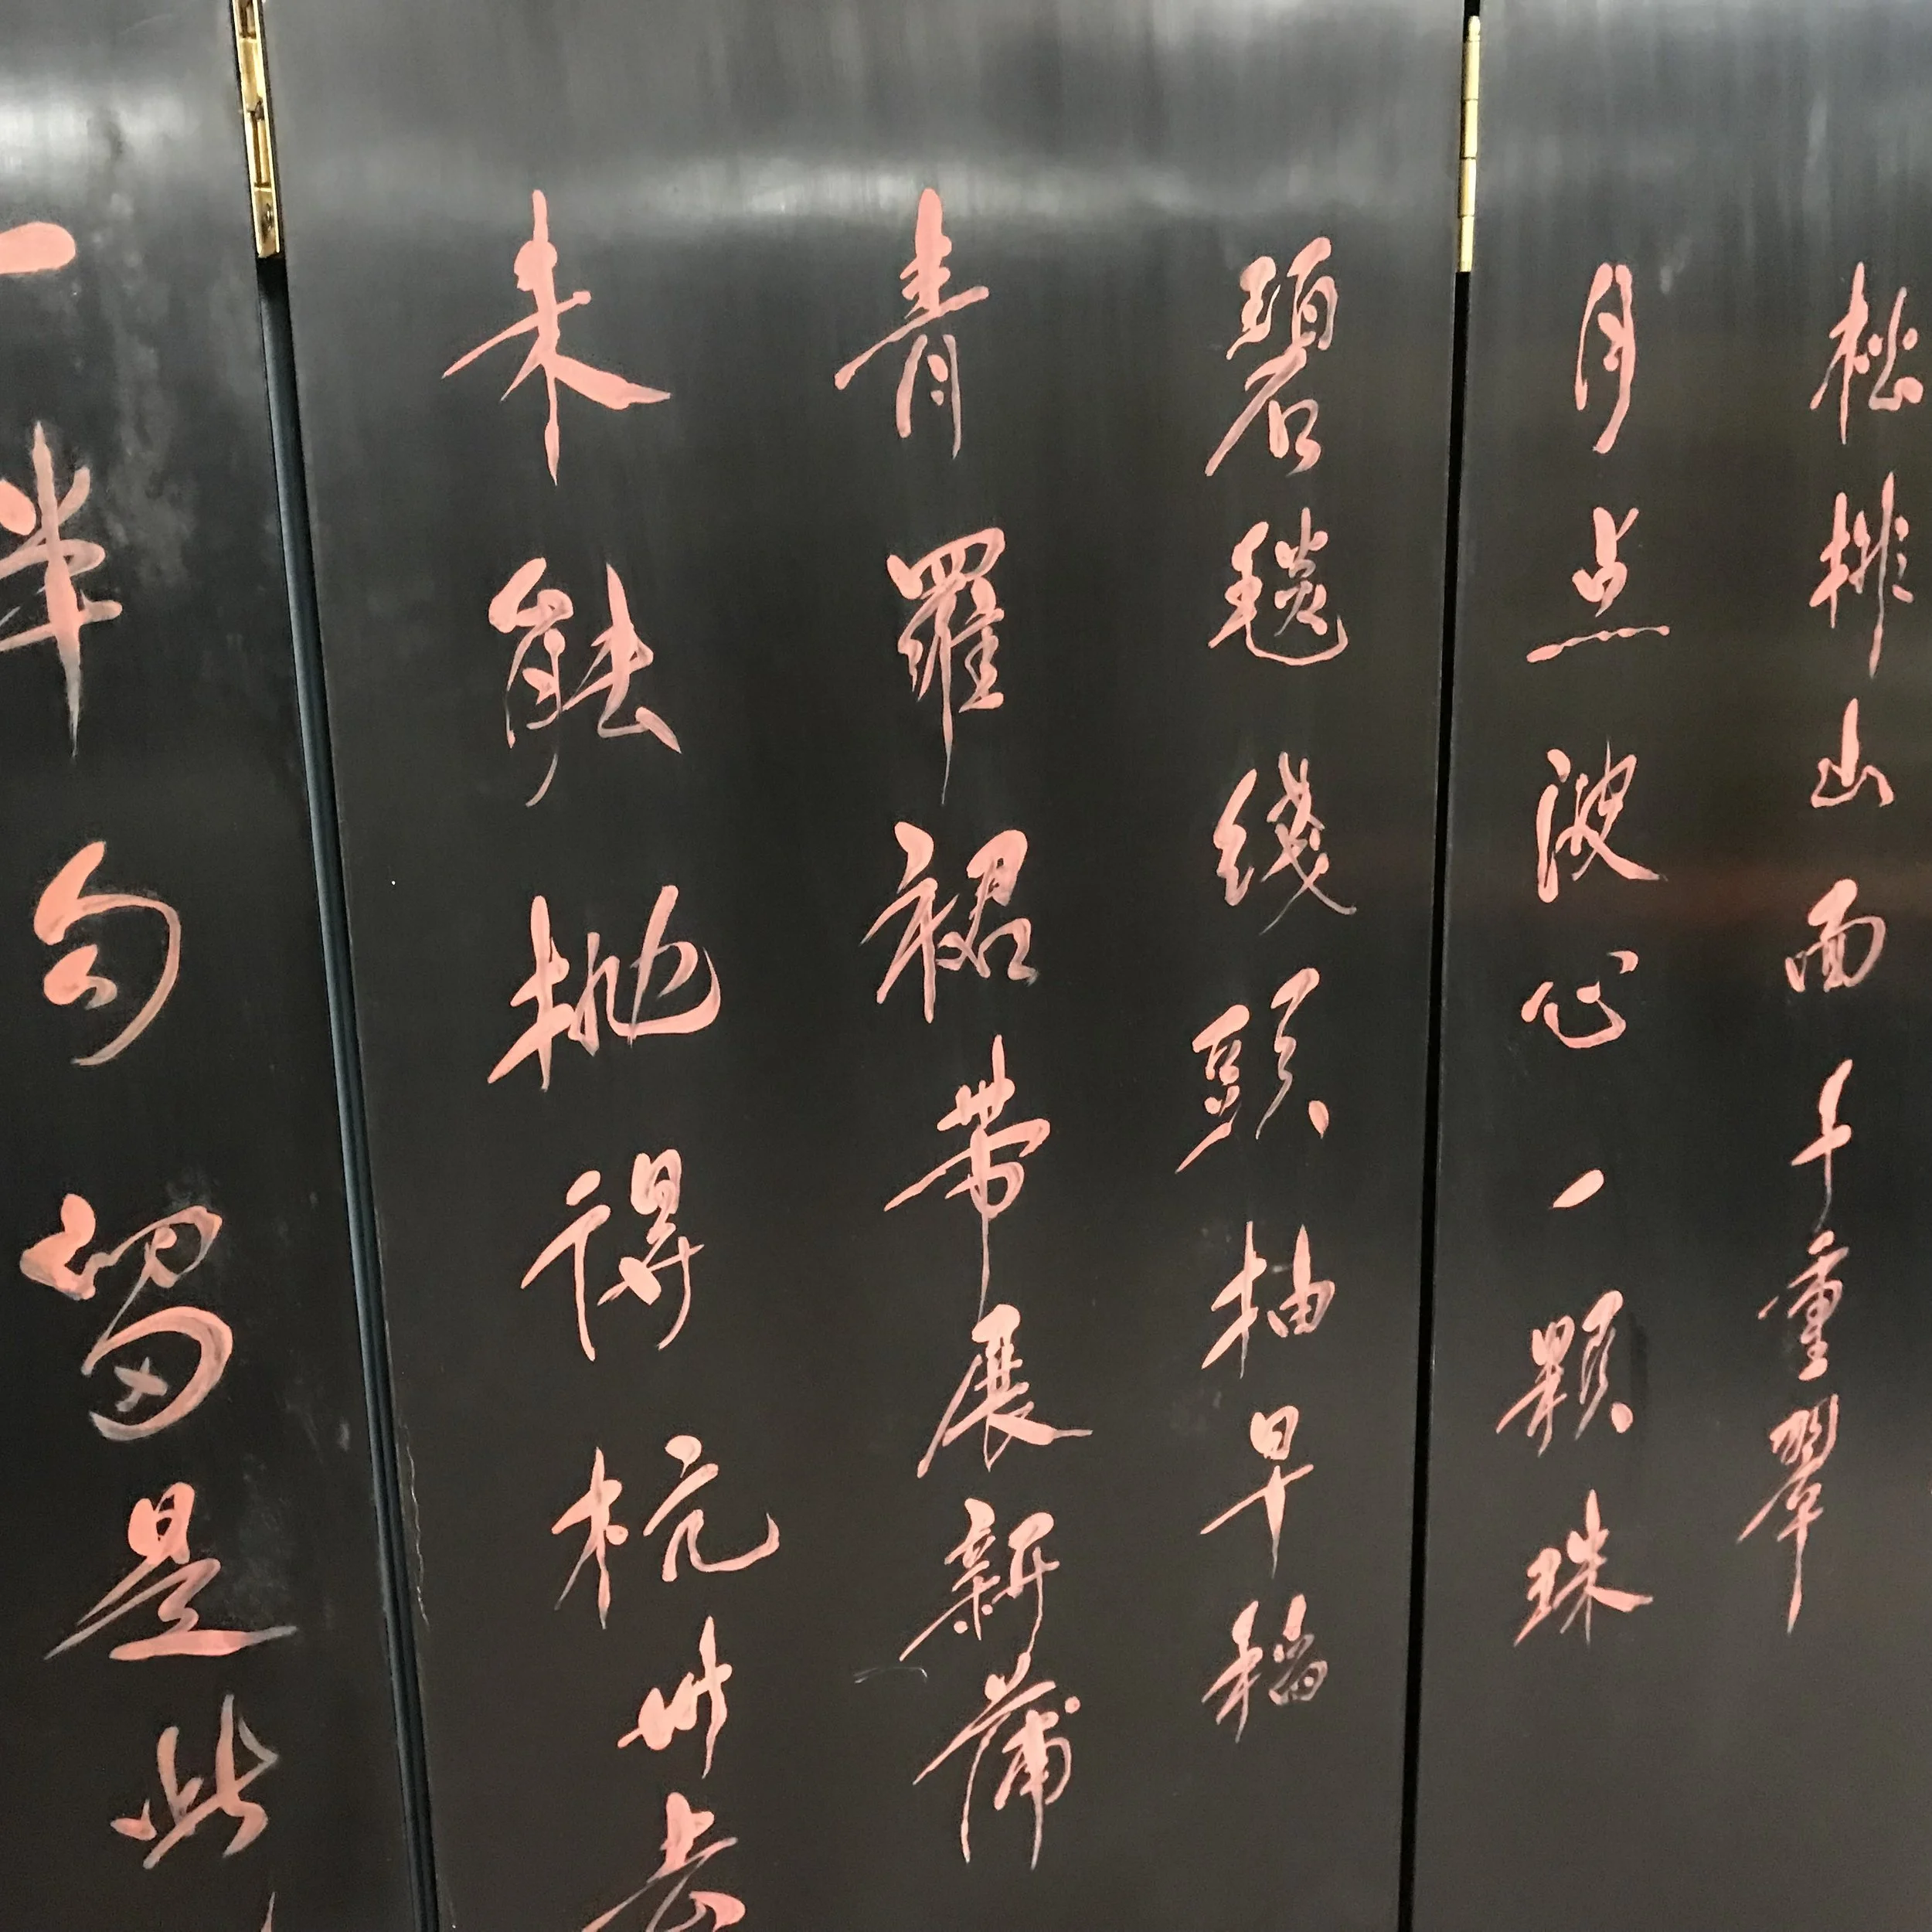 松排山面千重翠
月点波心一顆珠
碧毯綫頭抽早稻
青羅裙带展新蒲
未能抛得杭州去
一半勾留是此